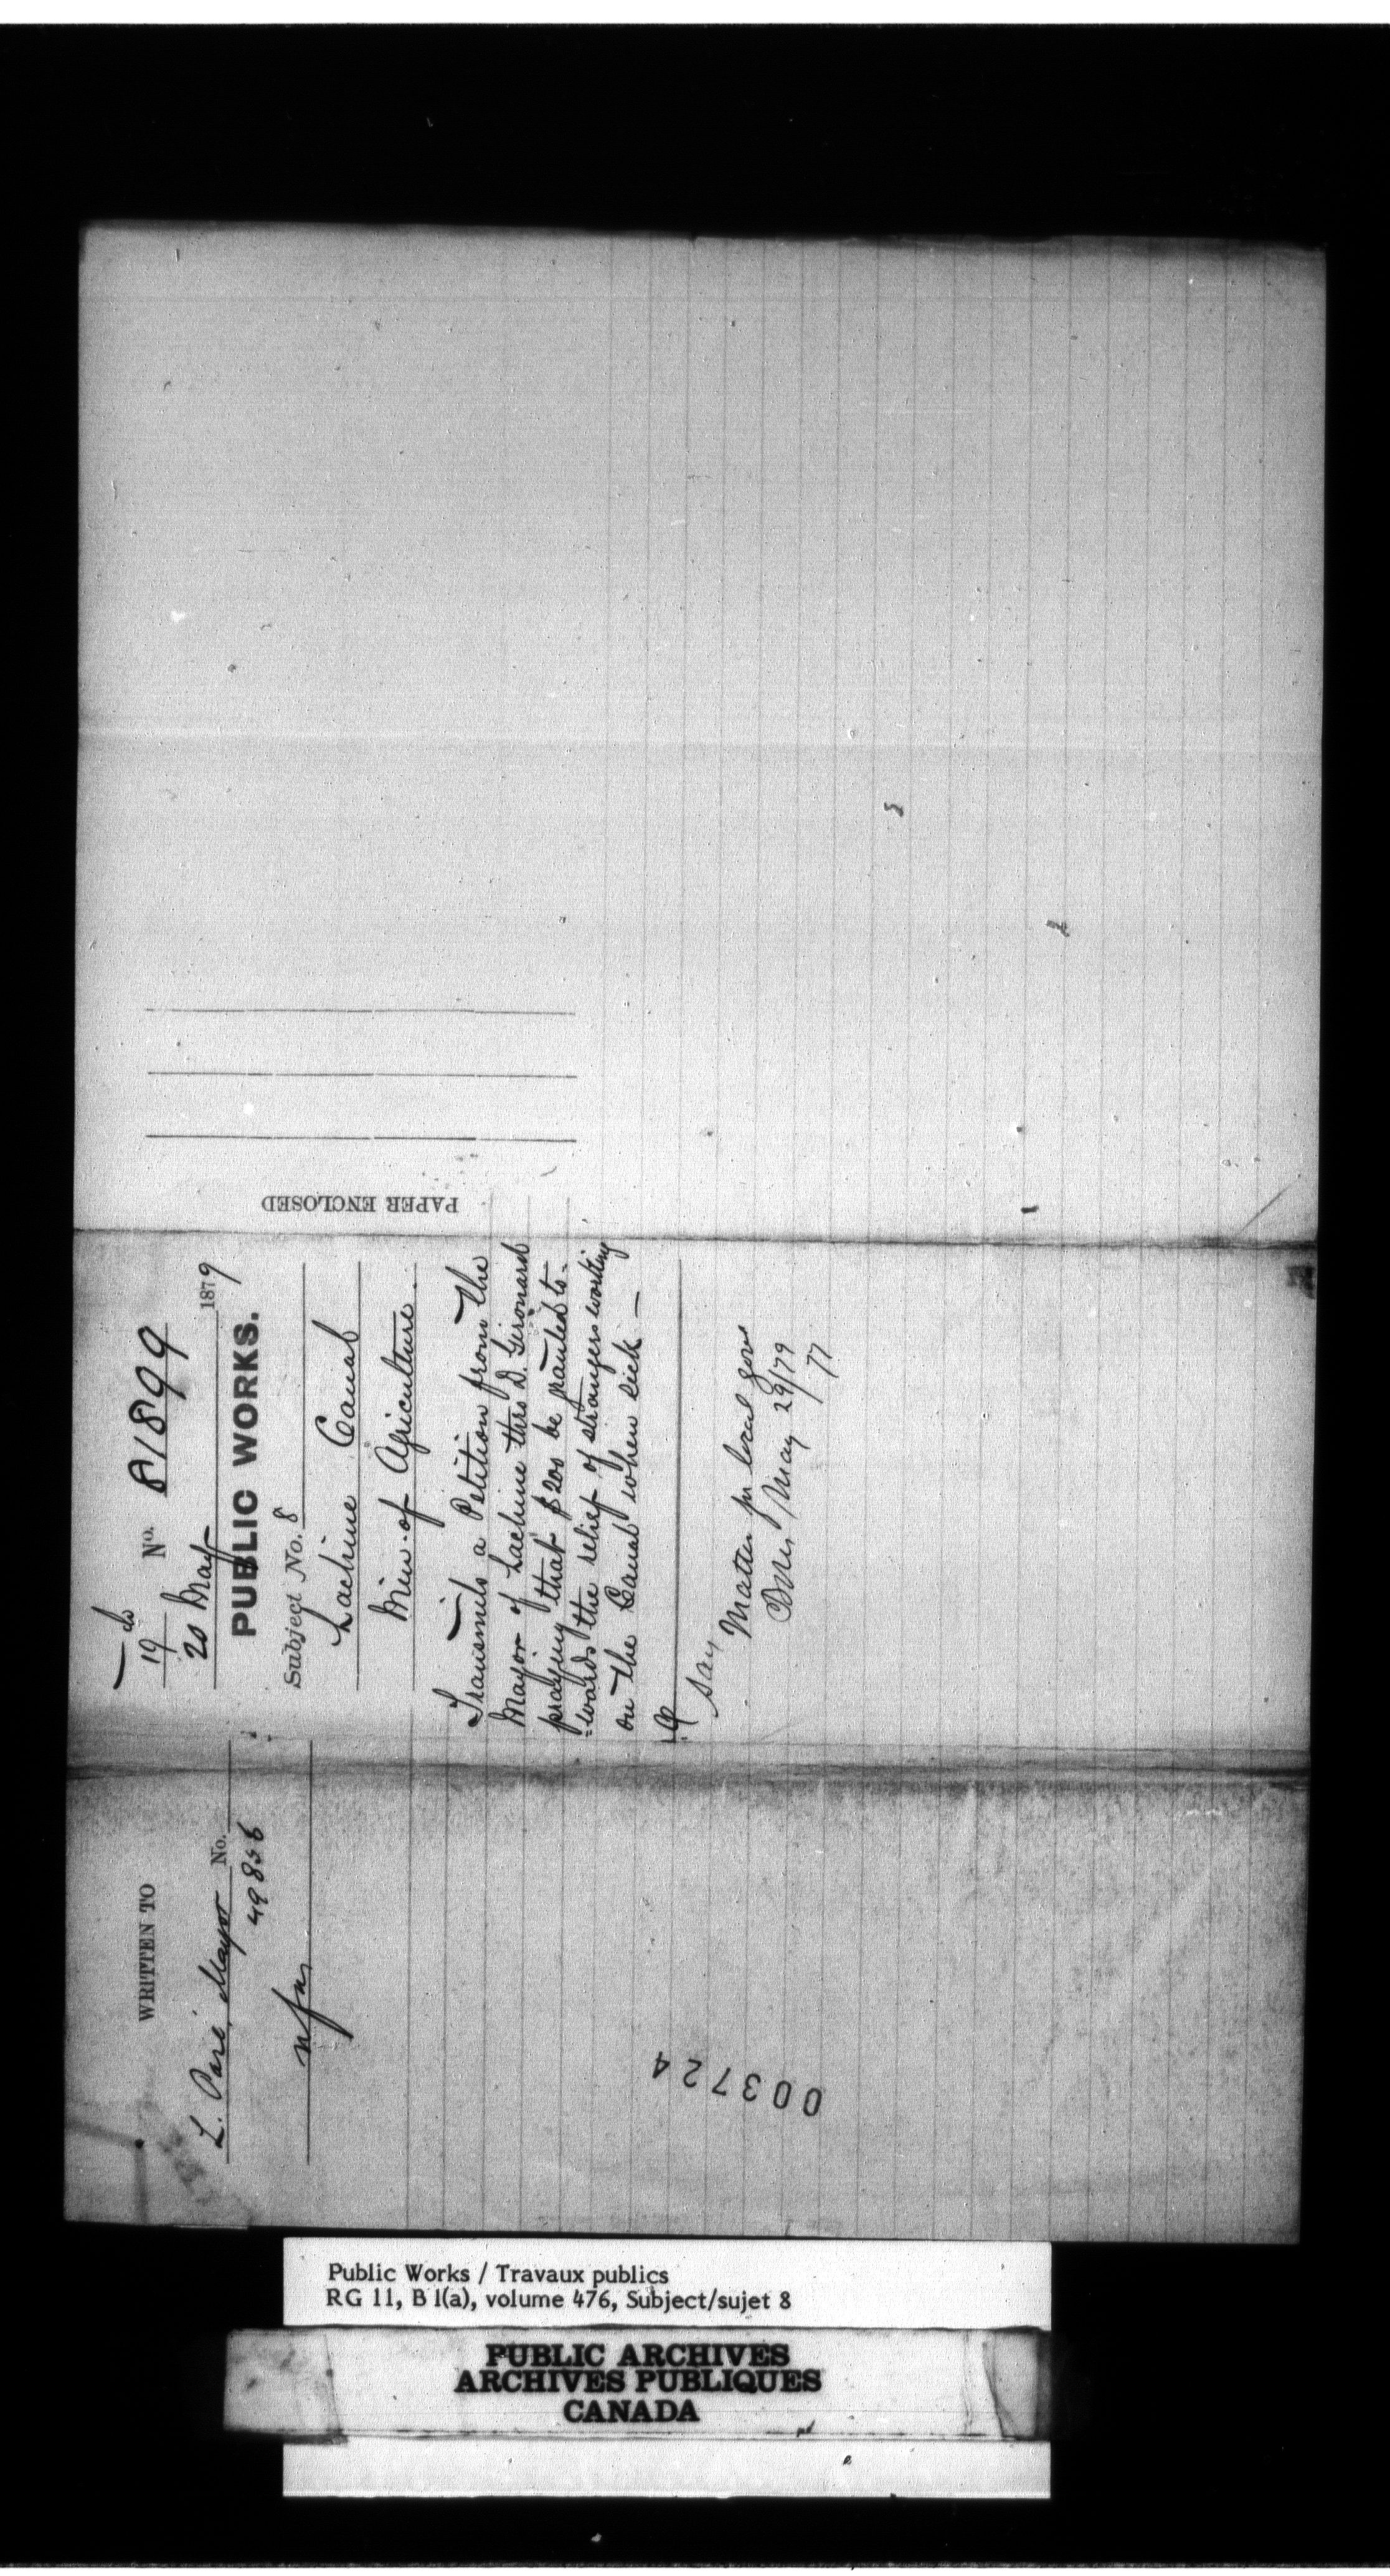 19 No. 81899
20 May 1879
PUBLIC WORKS.
Subject No. 8
Lachine Canal
Min. of Agriculture.
Transmits a Petition from the
Mayor of Lachine thro D. Girouard
praying that $200 be granted to-
-wards the relief of strangers working
on the Canal when sick —
Say
Matter for local gov
May 29/79
/77
PAPER ENCLOSED
WRITTEN TO
L. Paré, Mayor No.
49856
003724
Public Works / Travaux publics
RG 11, B 1(a), volume 476, Subject/sujet 8
PUBLIC ARCHIVES
ARCHIVES PUBLIQUES
CANADA